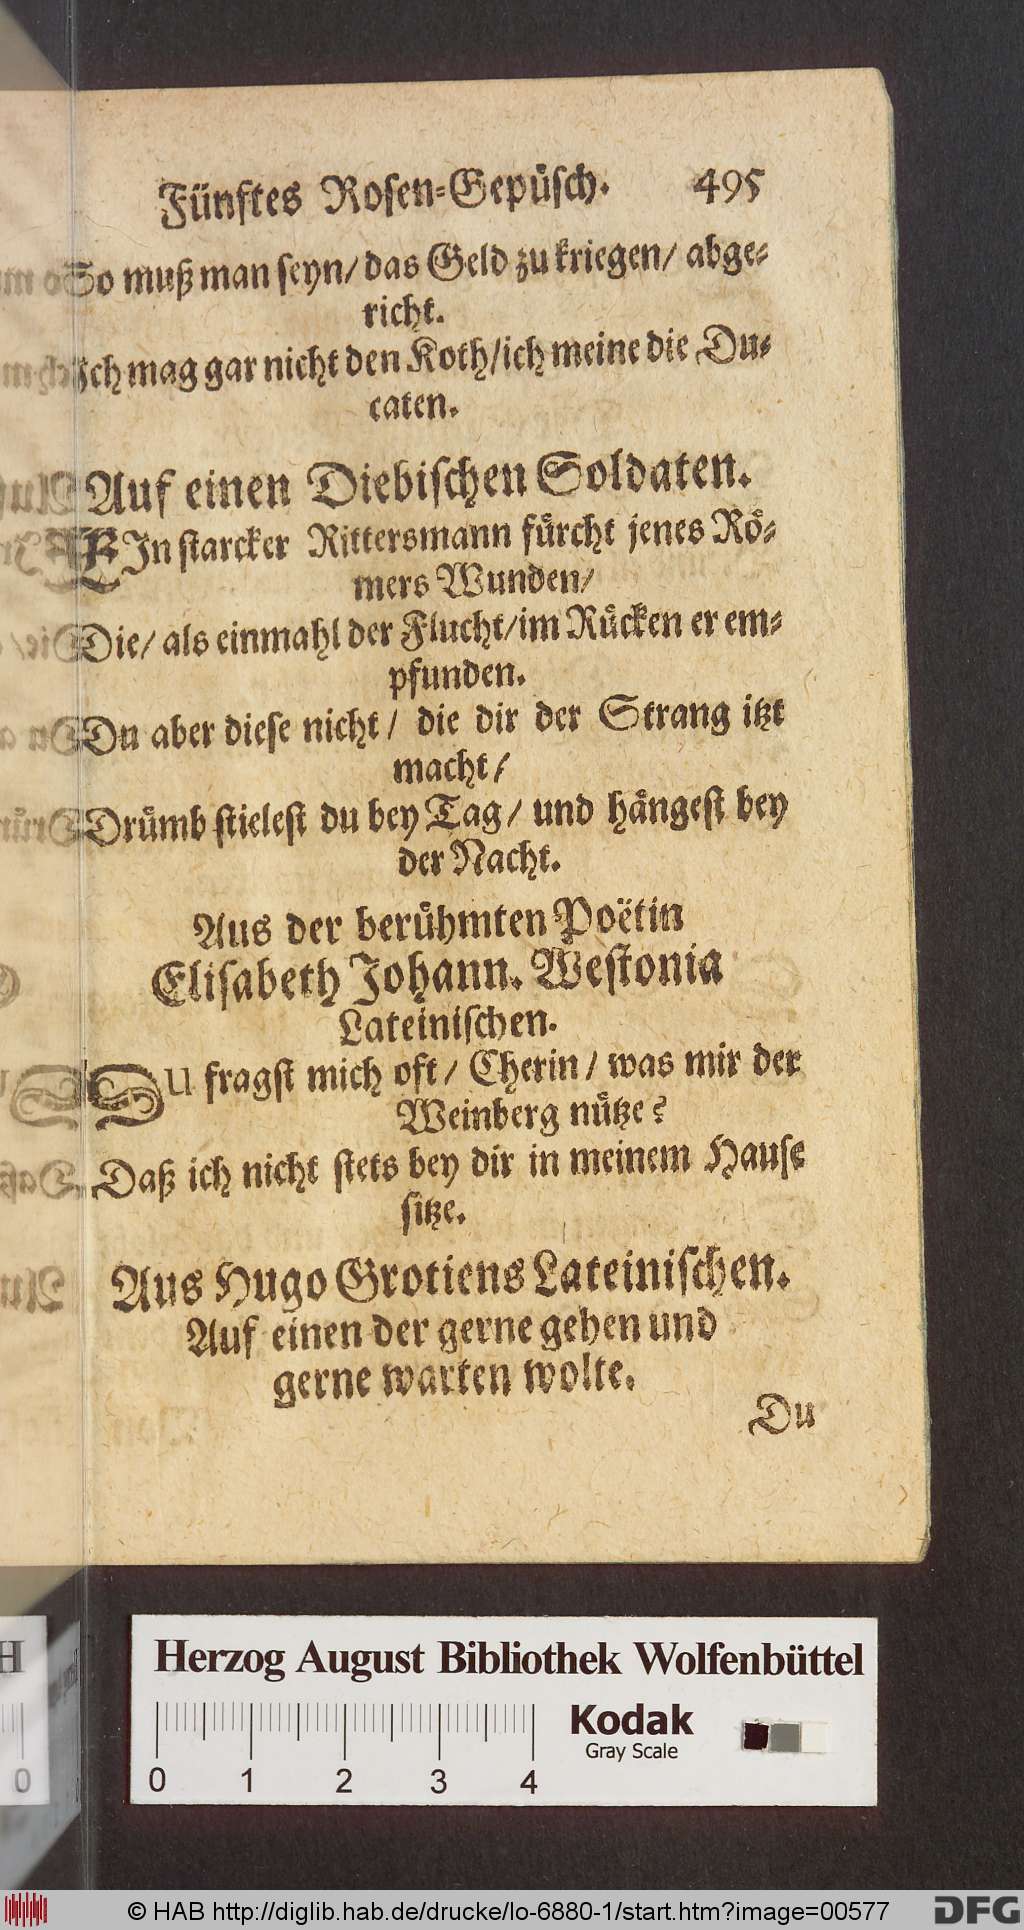 Fünftes Rosen-Gepüsch. 495
So muß man seyn/ das Geld zu kriegen/ abge-
richt.
Ich mag gar nicht den Koth/ ich meine die Du-
caten.
Auf einen Diebischen Soldaten.
EIn starcker Rittersmann fürcht jenes Rö-
mers Wunden/
Die/ als einmahl der Flucht/ im Rücken er em-
pfunden.
Du aber diese nicht/ die dir der Strang itzt
macht/
Drümb stielest du bey Tag/ und hängest bey
der Nacht.
Aus der berühmten Poëtin
Elisabeth Johann. Westonia
Lateinischen.
DU fragst mich oft/ Cherin/ was mir der
Weinberg nütze?
Daß ich nicht stets bey dir in meinem Hause
sitze.
Aus Hugo Grotiens Lateinischen.
Auf einen der gerne gehen und
gerne warten wolte.
Du
Herzog August Bibliothek Wolfenbüttel
Kodak
Gray Scale
0 1 2 3 4
© HAB http://diglib.hab.de/drucke/lo-6880-1/start.htm?image=00577
DFG